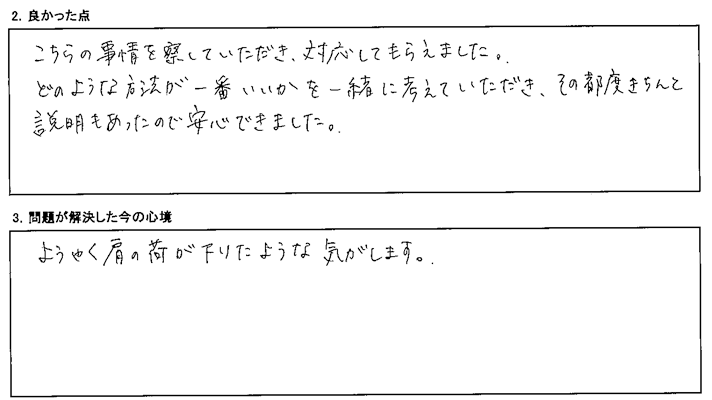 2. 良かった点
こちらの事情を察していただき、対応してもらえました。
どのような方法が一番いいかを一緒に考えていただき、その都度きちんと
説明もあったので安心できました。
3. 問題が解決した今の心境
ようやく肩の荷が下りたような気がします。